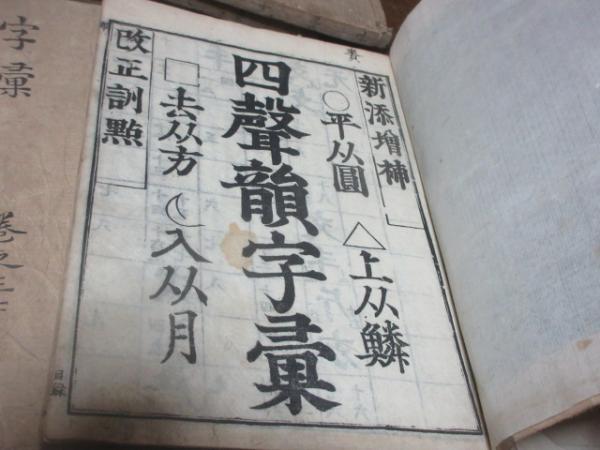 新添增補
△上从鱗
○平从圓
四聲韻字彙
□去从方
☾入从月
改正訓點
目錄
字彙
卷之